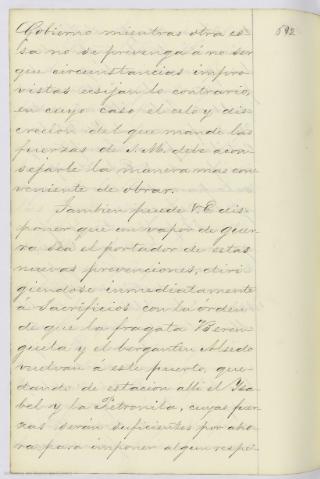 Gobierno mientras otra co-
sa no se prevenga á no ser
que circunstancias impro-
vistas ecsijan lo contrario,
en cuyo caso el celo y dis-
crecion del que mande las
fuerzas de S.M. debe acon
sejarle la manera mas con
veniente de obrar.
Tambien puede V.E. dis-
poner que un vapor de guer
ra sea el portador de estas
nuevas prevenciones, diri
giendose inmediatamente
á Sacrificios con la órden
de que la fragata Beren
guela y el bergantin Alsedo
vuelvan á este puerto, que-
dando de estacion alli el Ysa
bel y la Petronila, cuyas fuer
zas serán suficientes por aho
ra para imponer algun respe-